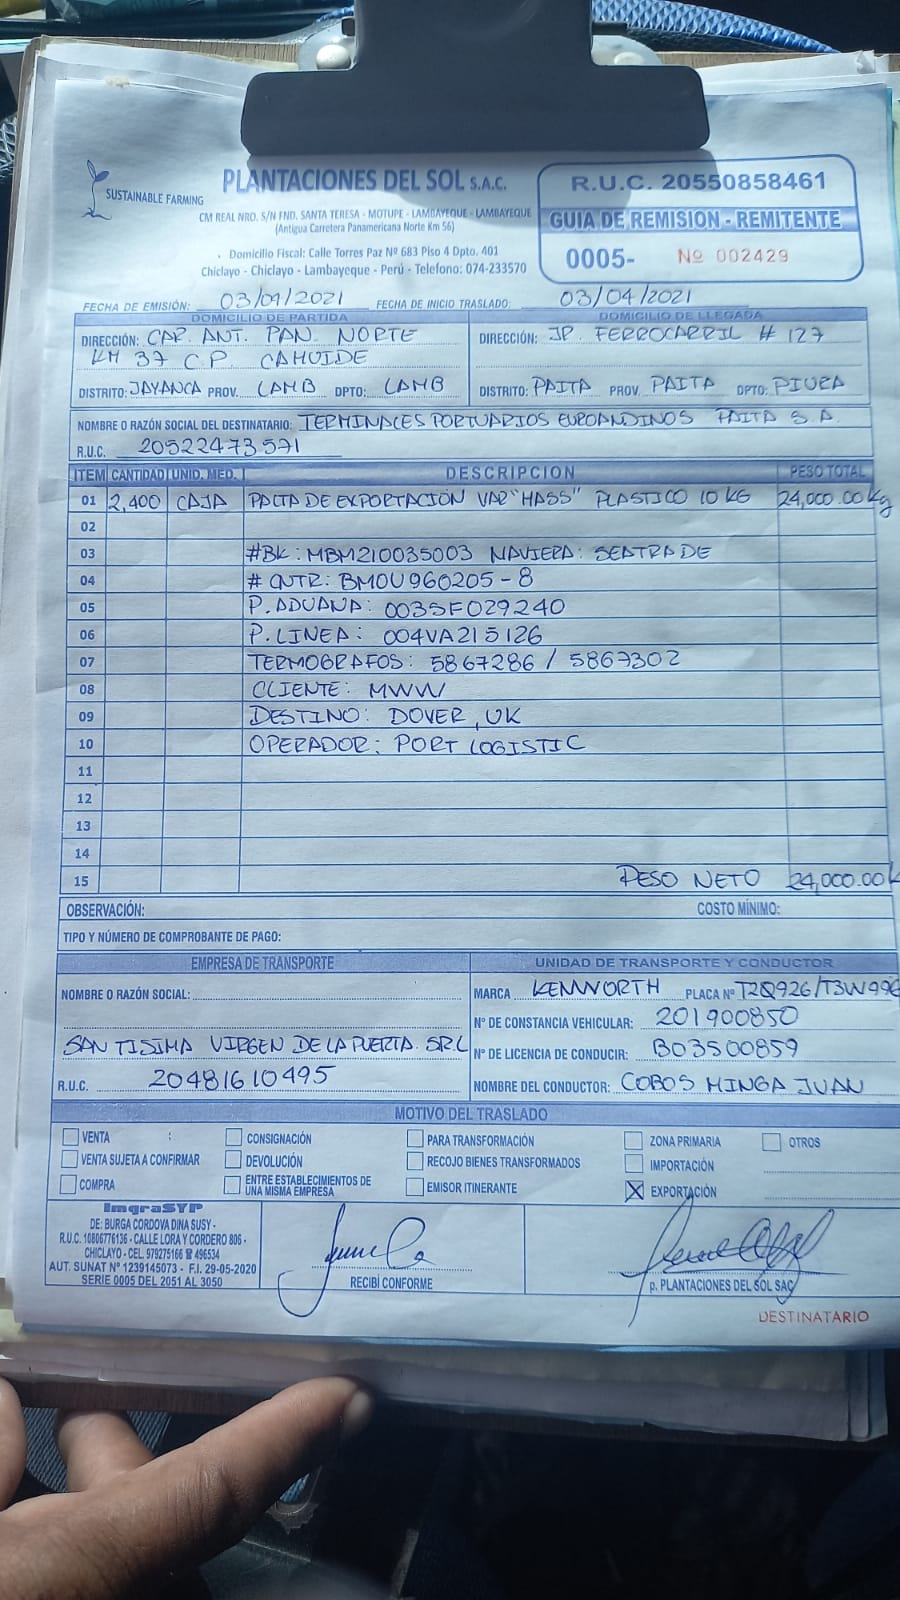 SUSTAINABLE FARMING
PLANTACIONES DEL SOL S.A.C.
CM REAL NRO. S/N FND. SANTA TERESA - MOTUPE - LAMBAYEQUE - LAMBAYEQUE
(Antigua Carretera Panamericana Norte Km 56)
Domicilio Fiscal: Calle Torres Paz Nº 683 Piso 4 Dpto. 401
Chiclayo - Chiclayo - Lambayeque - Perú - Telefono: 074-233570
R.U.C. 20550858461
GUIA DE REMISION - REMITENTE
0005- Nº 002429
FECHA DE EMISIÓN: 03/04/2021 FECHA DE INICIO TRASLADO: 03/04/2021
DOMICILIO DE PARTIDA DOMICILIO DE LLEGADA
DIRECCIÓN: CAR. ANT. PAN. NORTE DIRECCIÓN: JP. FERROCARRIL # 127
KM 37 C.P. CAHUIDE
DISTRITO: JAYANCA PROV. LAMB DPTO: LAMB DISTRITO: PAITA PROV. PAITA DPTO: PIURA
NOMBRE O RAZÓN SOCIAL DEL DESTINATARIO: TERMINALES PORTUARIOS EUROANDINOS PAITA S.A.
R.U.C. 20522473571
ITEM CANTIDAD UNID. MED. DESCRIPCION PESO TOTAL
01 2,400 CAJA PALTA DE EXPORTACIÓN VAR "HASS" PLASTICO 10 KG 24,000.00 Kg
02
03 #BK: MBM210035003 NAVIERA: SEATRADE
04 # CNTR: BMOU960205-8
05 P. ADUANA: 0035F029240
06 P. LINEA: 004VA215126
07 TERMOGRAFOS: 5867286 / 5867302
08 CLIENTE: MWW
09 DESTINO: DOVER, UK
10 OPERADOR: PORT LOGISTIC
11
12
13
14
15 PESO NETO 24,000.00 K
OBSERVACIÓN: COSTO MÍNIMO:
TIPO Y NÚMERO DE COMPROBANTE DE PAGO:
EMPRESA DE TRANSPORTE UNIDAD DE TRANSPORTE Y CONDUCTOR
NOMBRE O RAZÓN SOCIAL: MARCA KENWORTH PLACA Nº T2Q926/T3W996
Nº DE CONSTANCIA VEHICULAR: 201900850
SANTISIMA VIRGEN DE LA PUERTA SRL Nº DE LICENCIA DE CONDUCIR: B03500859
R.U.C. 20481610495 NOMBRE DEL CONDUCTOR: COBOS MINGA JUAN
MOTIVO DEL TRASLADO
VENTA : CONSIGNACIÓN PARA TRANSFORMACIÓN ZONA PRIMARIA OTROS
VENTA SUJETA A CONFIRMAR DEVOLUCIÓN RECOJO BIENES TRANSFORMADOS IMPORTACIÓN
COMPRA ENTRE ESTABLECIMIENTOS DE UNA MISMA EMPRESA EMISOR ITINERANTE X EXPORTACIÓN
ImgraSYP
DE: BURGA CORDOVA DINA SUSY -
R.U.C. 10806776136 - CALLE LORA Y CORDERO 806 -
CHICLAYO - CEL. 979275166 ☎ 496534
AUT. SUNAT Nº 1239145073 - F.I. 29-05-2020
SERIE 0005 DEL 2051 AL 3050
RECIBÍ CONFORME
p. PLANTACIONES DEL SOL SAC
DESTINATARIO